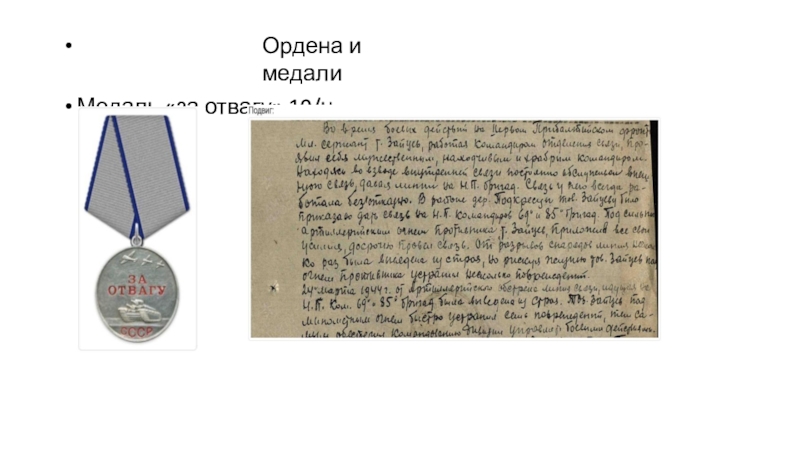 Ордена и
медали
Медаль «за отвагу»
Подвиг:
Во время боевых действий на Первом Прибалтийском фронт
Мл. сержант т. Зайцев, работая командиром отделения связи, про-
явил себя мужественным, находчивым и храбрым командиром.
Находясь во взводе внутренней связи постоянно обслуживал внеш-
нюю связь, давал линии на Н.П. бригад. Связь у него всегда ра-
ботала безотказно. В районе дер. тов. Зайцеву было
приказано дать связь на Н.П. командиров 69й и 85й бригад. Под сильны
артиллерийским огнем противника т. Зайцев, приложив все свои
усилия, досрочно провел связь. От разрывов снарядов линия
ко раз была выведена из строя, но рискуя жизнью тов. Зайцев под
огнем противника устранил несколько повреждений.
24 марта 1944 г. от артиллерийского обстрела линия связи, идущая на
Н.П. ком. 69й и 85й бригад была выведена из строя. Тов. Зайцев под
минометным огнем быстро устранил семь повреждений, тем са-
мым командованию дивизии управлять боевыми действиями.
ЗА
ОТВАГУ
СССР